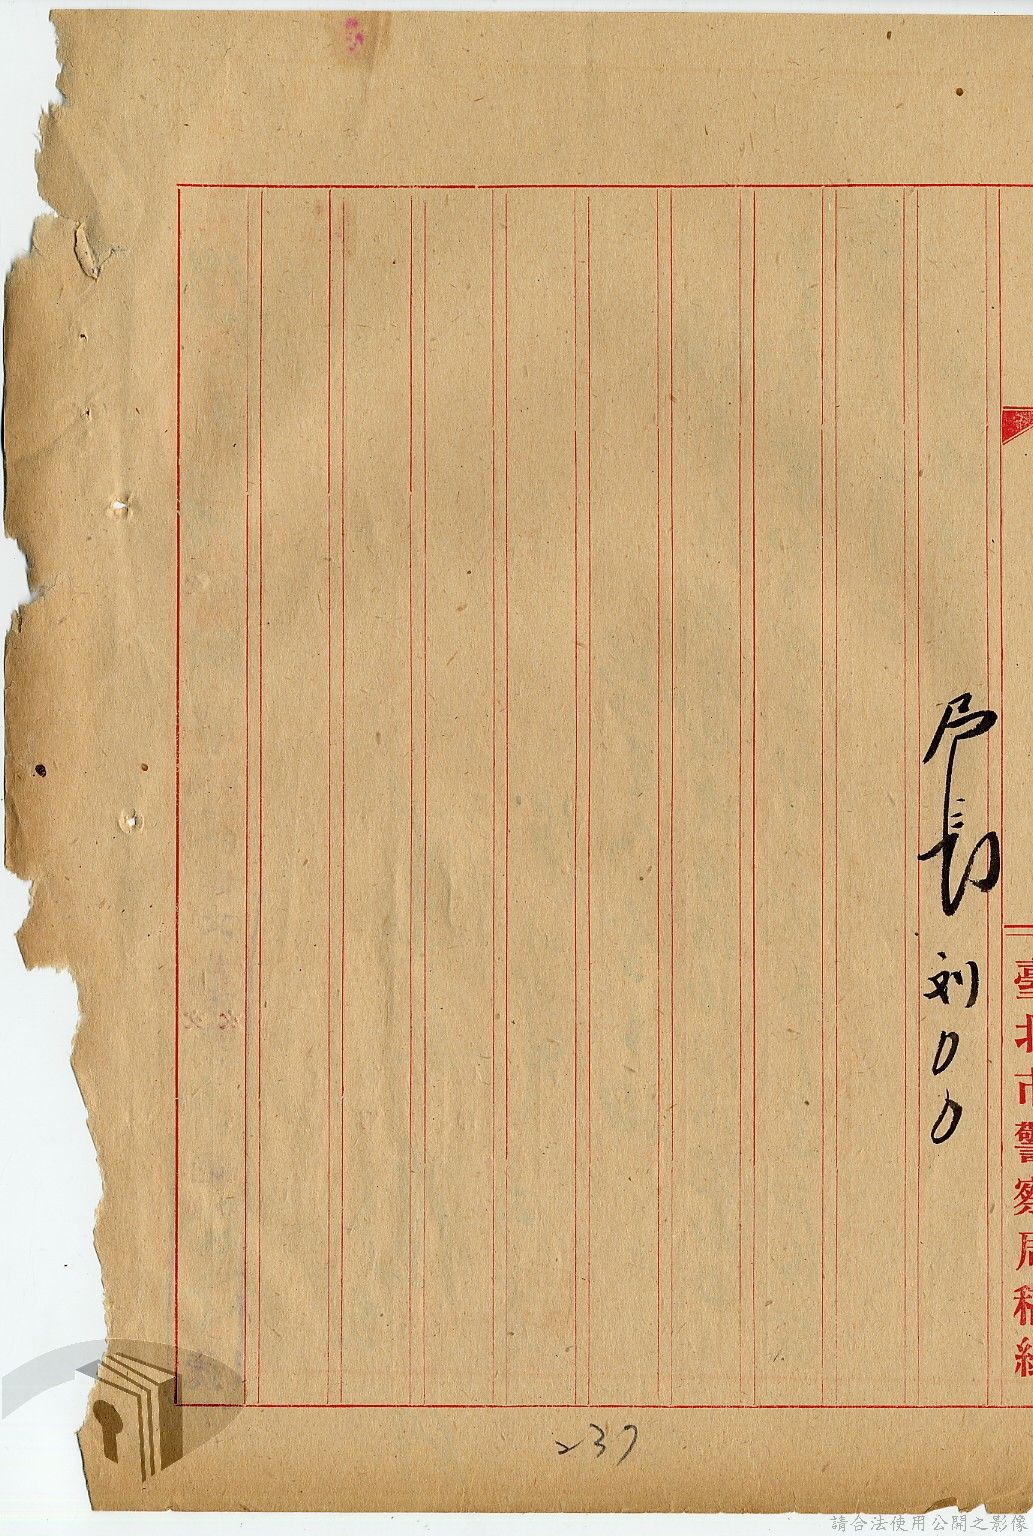 臺北市警察局稿紙
局長 刘〇〇
237
請合法使用公開之影像